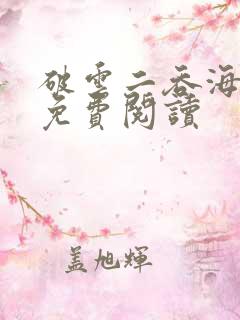 破雲二吞海
免費閱讀
蓋旭輝